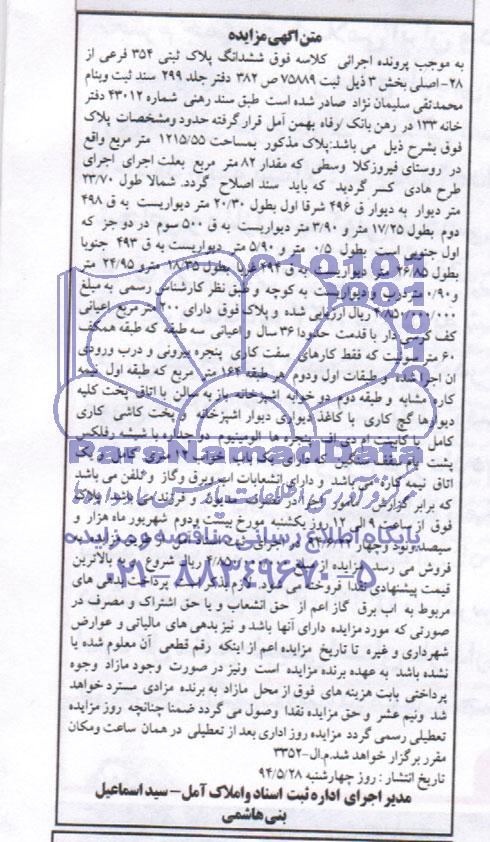 متن آگهی مزایده
به موجب پرونده اجرائی کلاسه فوق ششدانگ پلاک ثبتی ۳۵۴ فرعی از
۲۸- اصلی بخش ۳ ذیل ثبت ۷۵۸۸۹ ص ۳۸۲ دفتر جلد ۲۹۹ سند ثبت وبنام
محمدتقی سلیمان نژاد صادر شده است طبق سند رهنی شماره ۴۳۰۱۲ دفتر
خانه ۱۳۳ در رهن بانک /رفاه بهمن آمل قرار گرفته حدود ومشخصات پلاک
فوق بشرح ذیل می باشد:پلاک مذکور بمساحت ۱۲۱۵/۵۵ متر مربع واقع
در روستای فیروزکلا وسطی که مقدار ۸۲ متر مربع بعلت اجرای اجرای
طرح هادی کسر گردید که باید سند اصلاح گردد. شمالا طول ۲۳/۷۰
متر دیوار به دیوار ق ۴۹۶ شرقا اول بطول ۲۰/۳۰ متر دیواریست به ق ۴۹۸
دوم بطول ۱۷/۲۵ متر و ۳/۹۰ متر دیواریست به ق ۵۰۰ سوم در دو جز که
اول جنوبی است بطول ۰/۵ متر و ۵/۹۰ متر دیواریست به ق ۴۹۳ جنوبا
بطول ۲۶/۸۵ متر دیواریست به ق ۴۹۴ غربا بطول ۱۸.۴۵ متر و ۲۴/۹۵ متر
و ۰/۹۰ متر درب و دیواریست به کوچه و طبق نظر کارشناس رسمی به مبلغ
ریال ارزیابی شده و پلاک فوق دارای ۳۰۰ متر مربع اعیانی
کف کرسی دار با قدمت حدودا ۳۶ سال و اعیانی سه طبقه که طبقه همکف
۶۰ متر مسکونیت که فقط کارهای سفت کاری پنجره بیرونی و درب ورودی
ان اجرا شده و طبقات اول ودوم هر طبقه ۱۶۴ متر مربع که طبقه اول نیمه
کاره مشابه و طبقه دوم دو خوابه اشپزخانه باز به سالن با اتاق پخت کلیه
دیوارها گچ کاری با کاغذ دیواری دیوار اشپزخانه و پخت کاشی کاری
کامل با کابینت ام دی اف پنجره ها الومینیوم دو جداره با شیشه رفلکس
پشت بام سقف سنگین که دارای یک باب
اتاق نیمه کاره می باشد و دارای انشعابات اب وبرق وگاز و تلفن می باشد
که برابر گزارش مامور اجرا در تصرف مدیون و فرزند می باشد. پلاک
فوق از ساعت ۹ الی ۱۲ روز یکشنبه مورخ بیست ودوم شهریور ماه هزار و
سیصد ونود وچهار ۹۴/۶/۲۲ در اجرای ثبت
فروش می رسد. مزایده از مبلغ ریال شروع و به بالاترین
قیمت پیشنهادی نقدا فروخته می شود. لازم بذکر است پرداخت بدهی های
مربوط به اب برق گاز اعم از حق انشعاب و یا حق اشتراک و مصرف در
صورتی که مورد مزایده دارای آنها باشد و نیز بدهی های مالیاتی و عوارض
شهرداری و غیره تا تاریخ مزایده اعم از اینکه رقم قطعی آن معلوم شده یا
نشده باشد به عهده برنده مزایده است ونیز در صورت وجود مازاد وجوه
پرداختی بابت هزینه های فوق از محل مازاد به برنده مزادی مسترد خواهد
شد ونیم عشر و حق مزایده نقدا وصول می گردد ضمنا چنانچه روز مزایده
تعطیلی رسمی گردد مزایده روز اداری بعد از تعطیلی در همان ساعت ومکان
مقرر برگزار خواهد شد.م.ال-۳۳۵۲
تاریخ انتشار : روز چهارشنبه ۹۴/۵/۲۸
مدیر اجرای اداره ثبت اسناد واملاک آمل – سید اسماعیل
بنی هاشمی
ParsNamadData
پایگاه اطلاع رسانی مناقصه و مزایده
۰۲۱-۸۸۳۴۹۶۷۰-۵